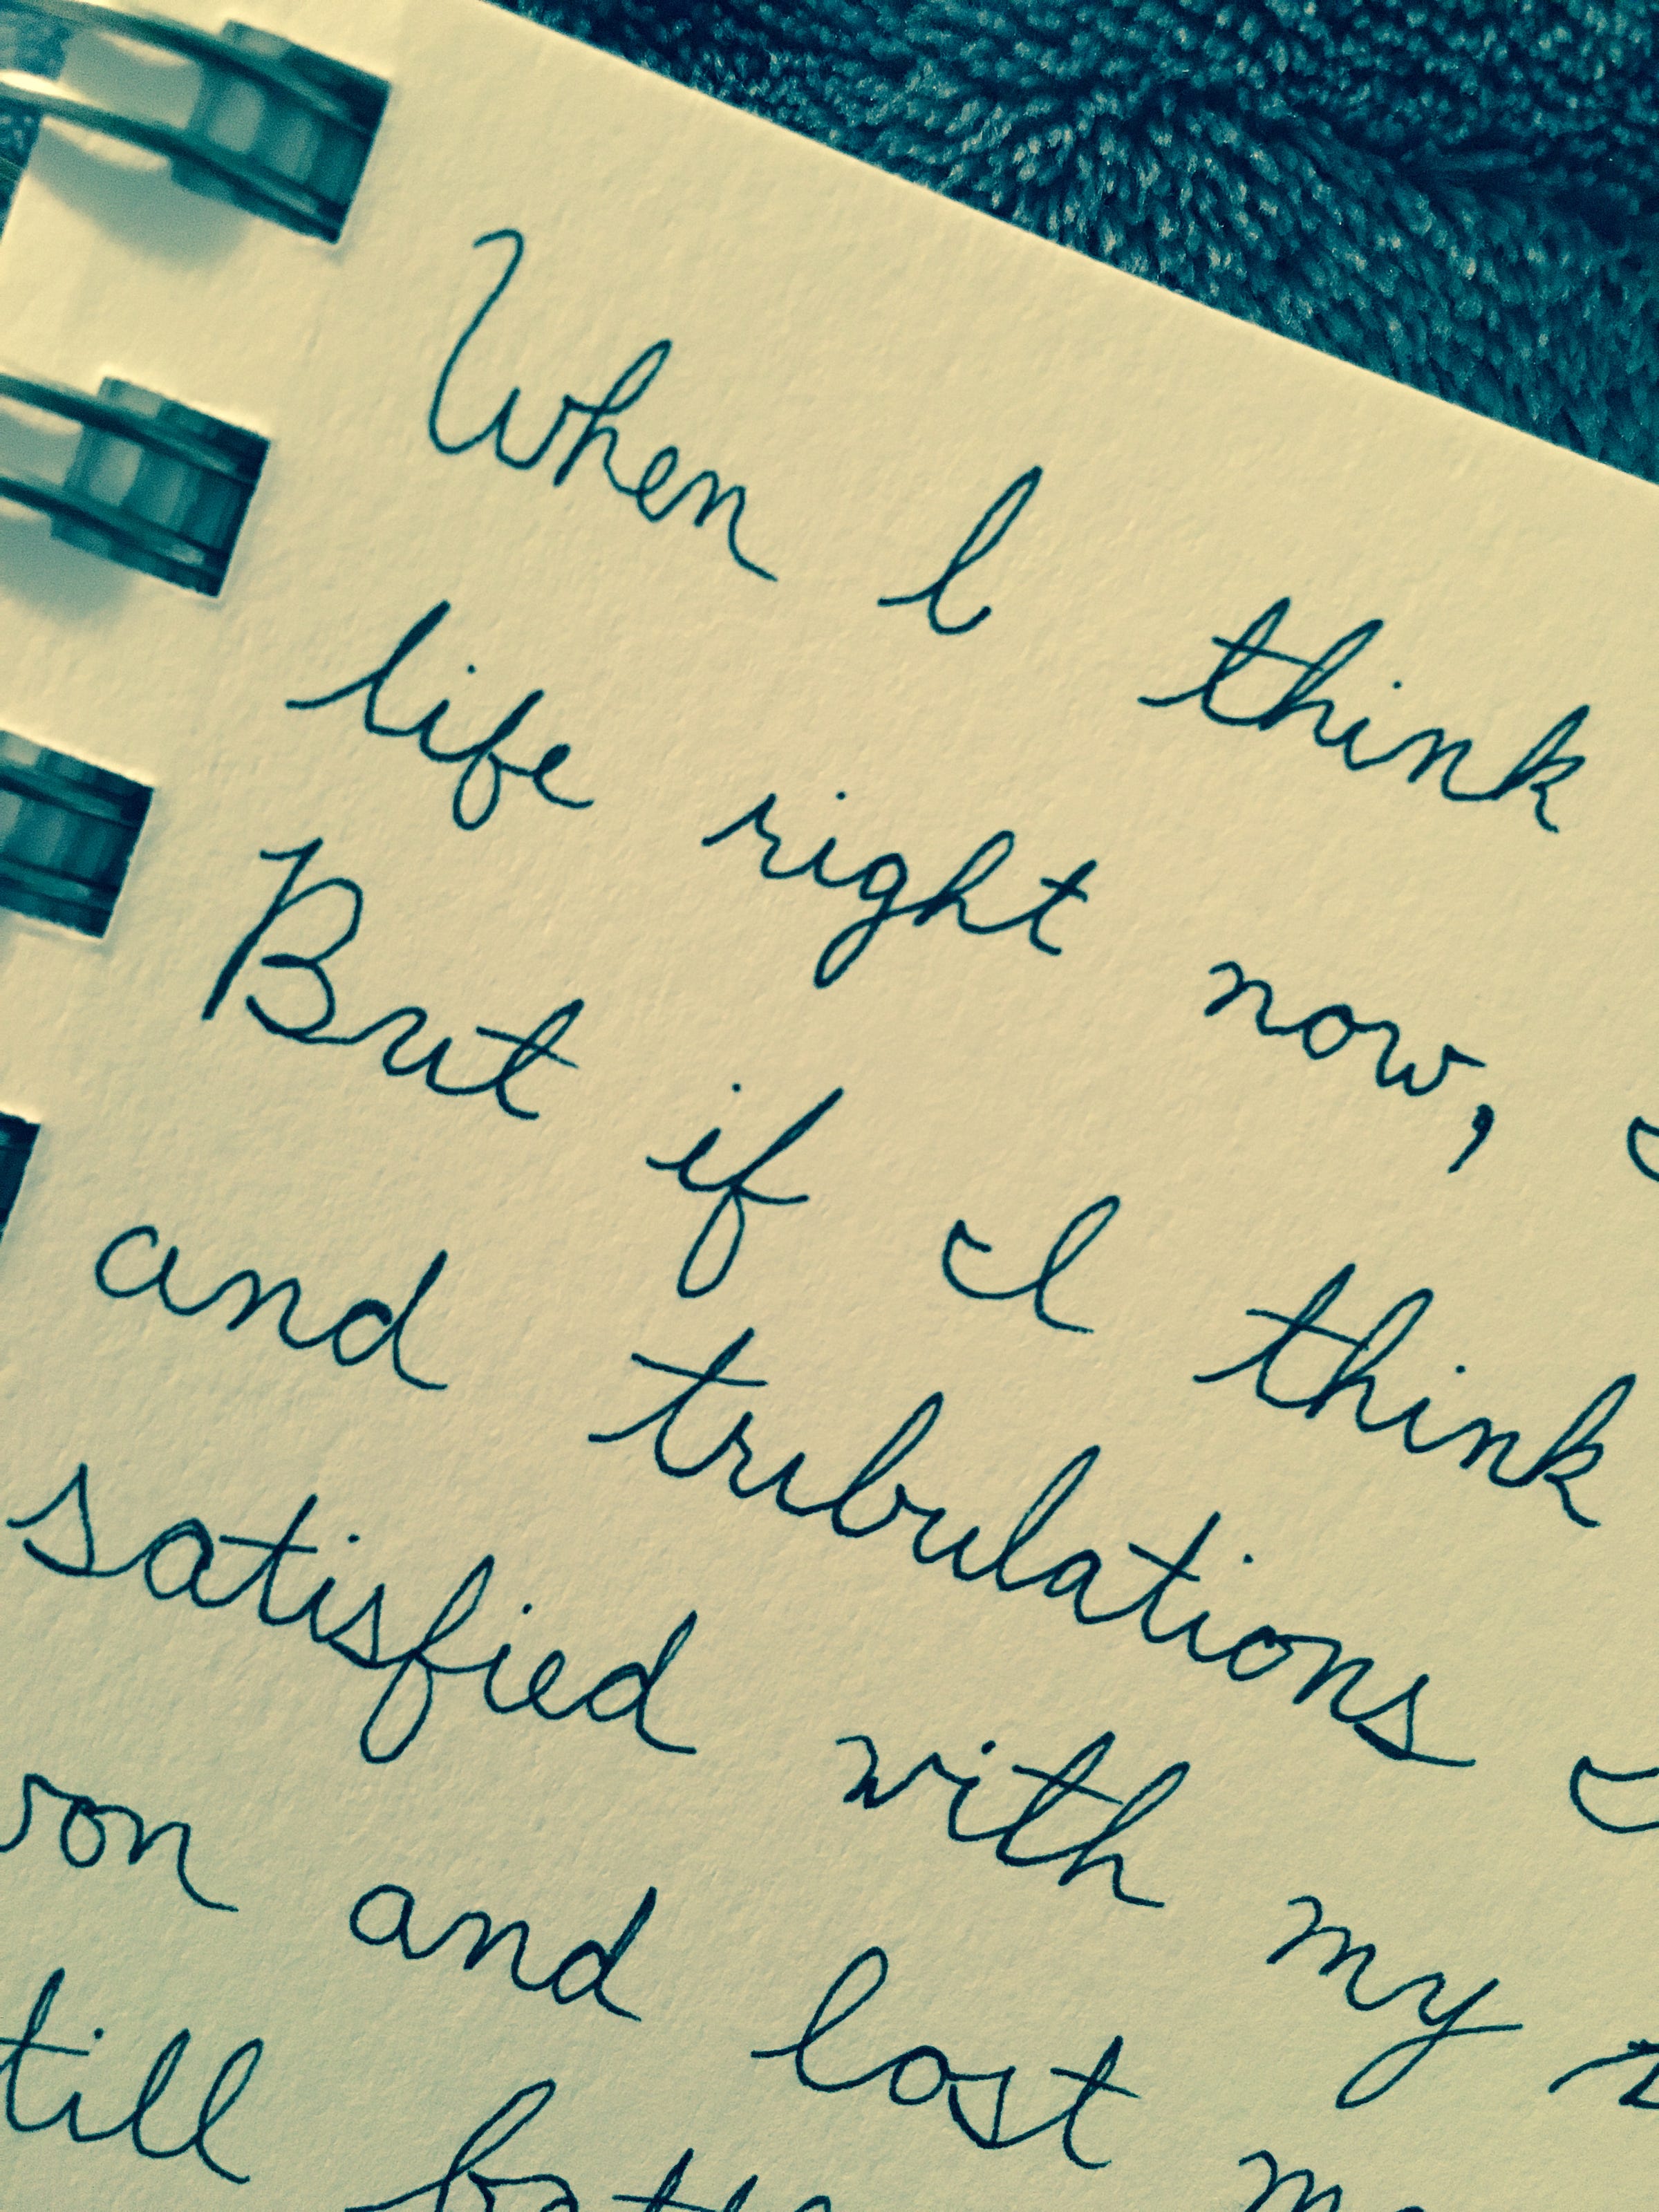 When I think
life right now,
But if I think
and tribulations
satisfied with my
won and lost
till